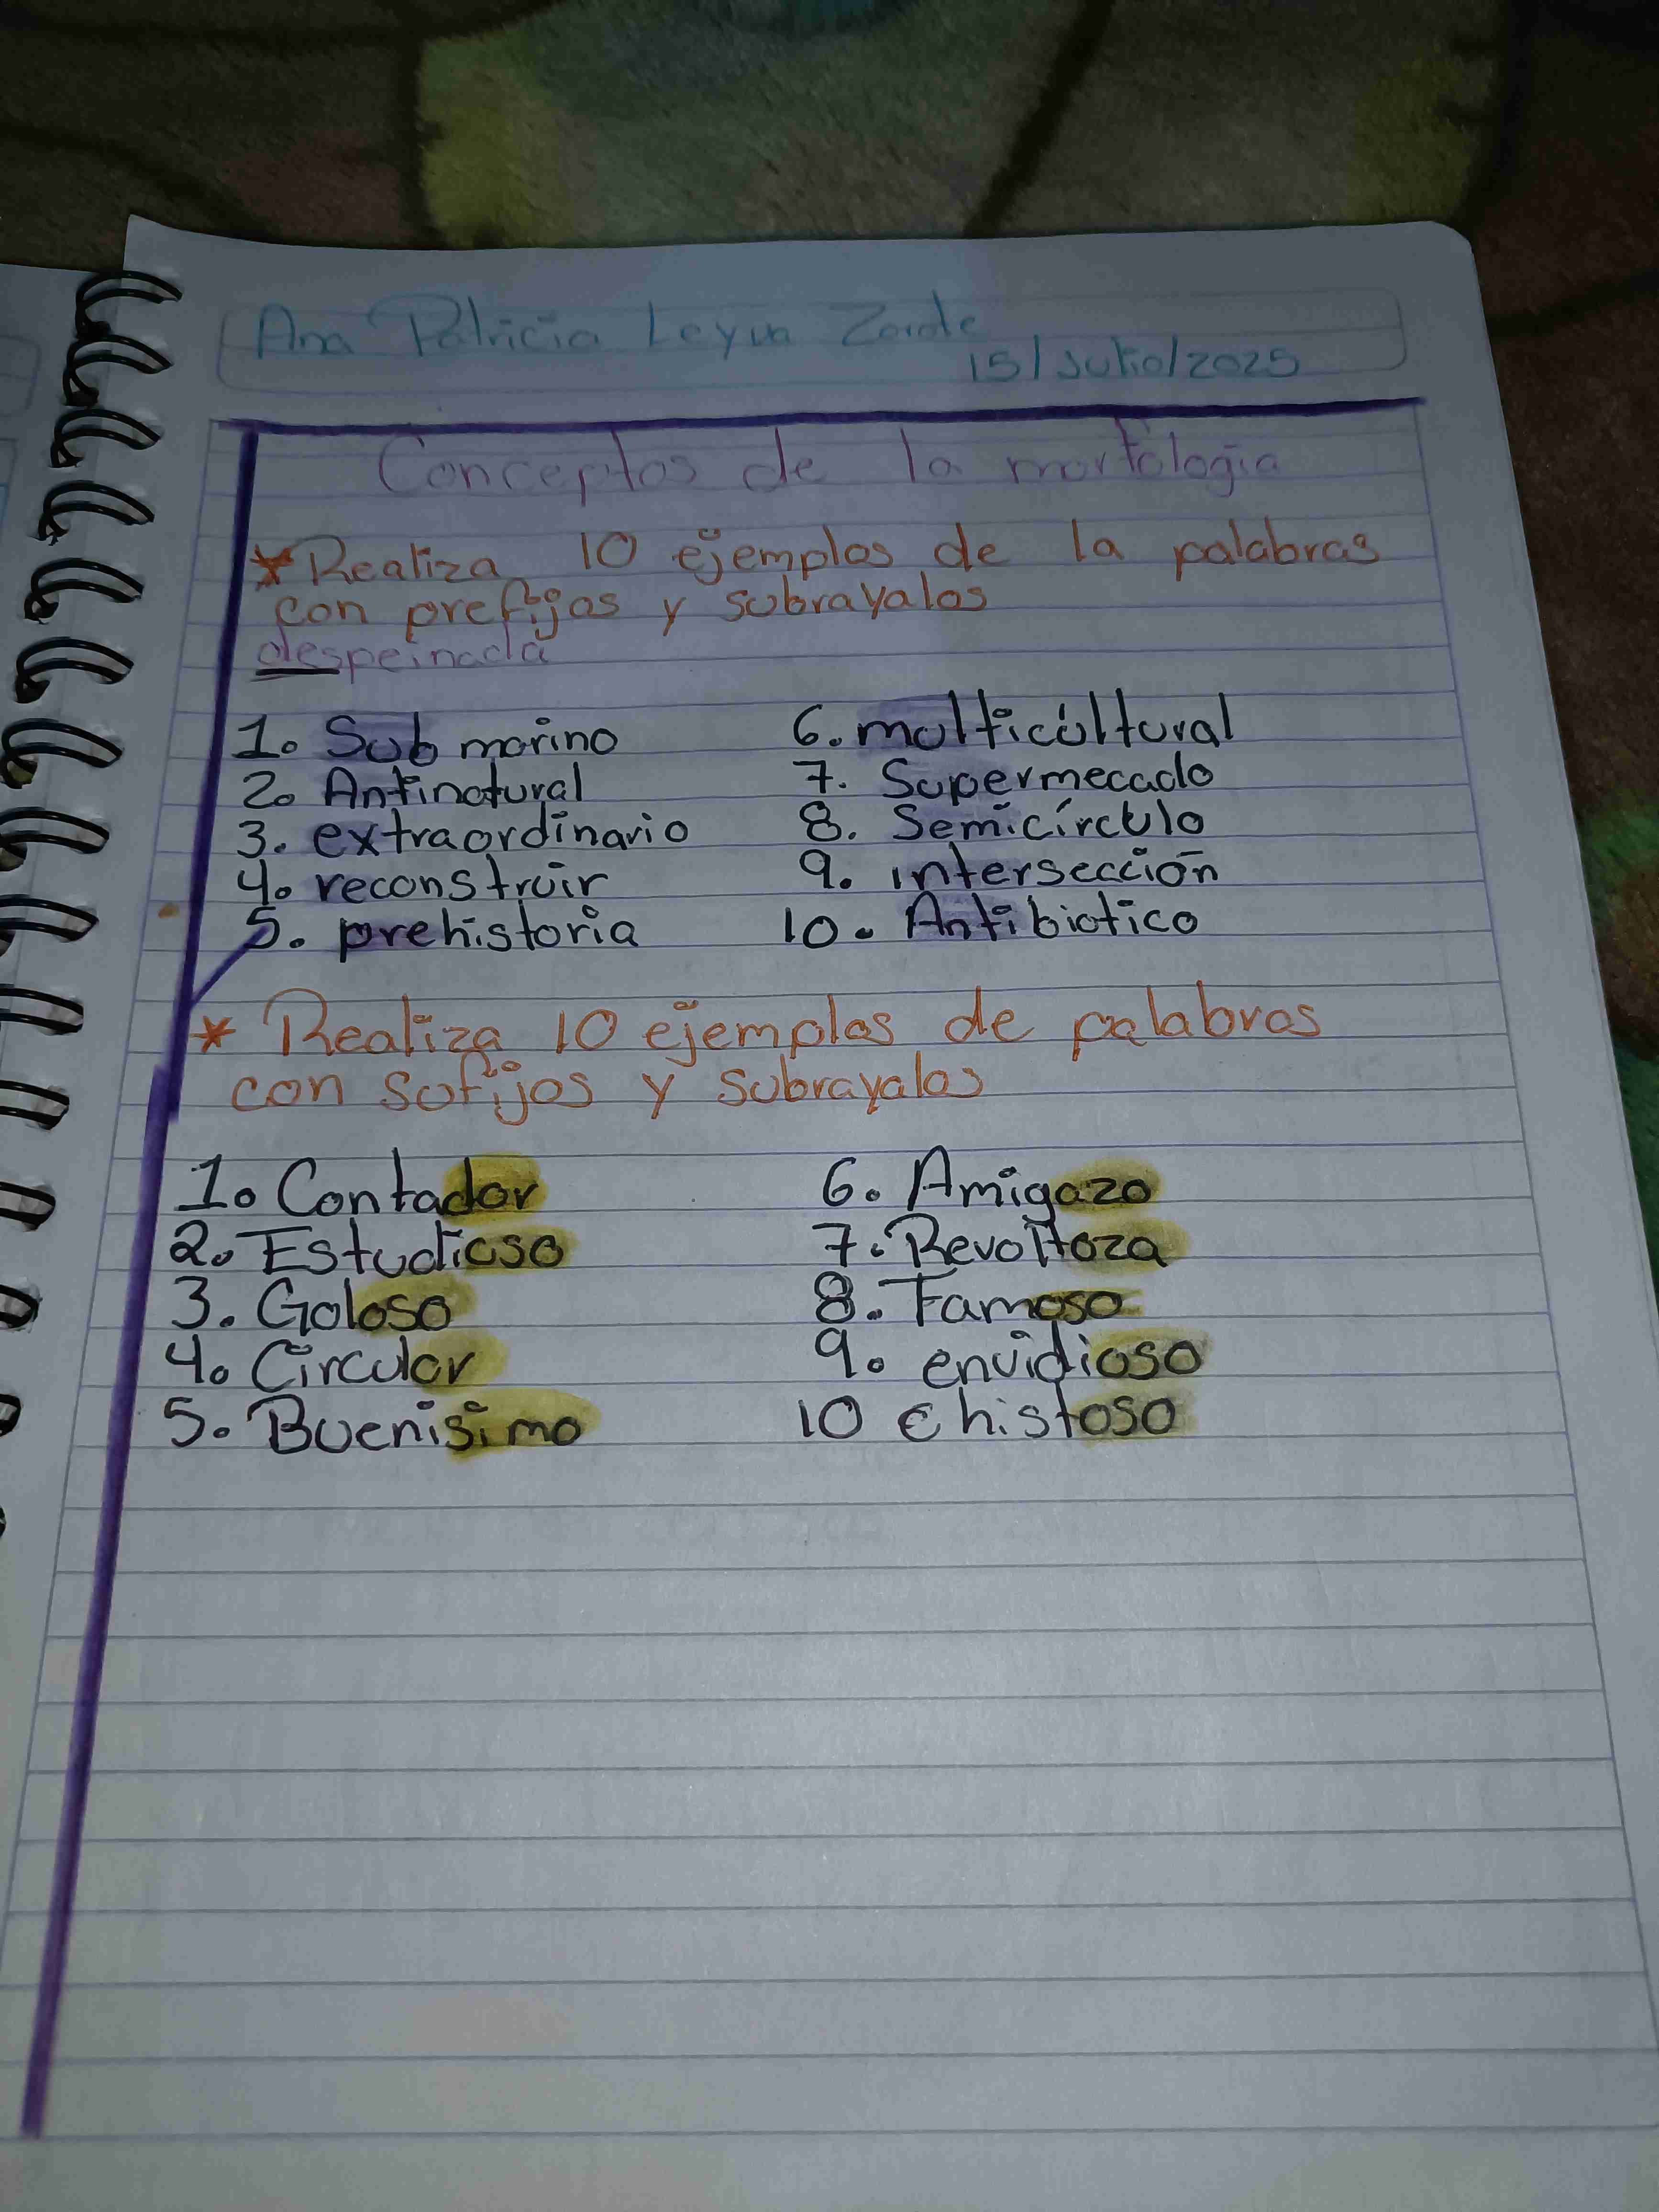 Ana Patricia Leyva Zarate
15/Julio/2025
Conceptos de la morfologia
*Realiza 10 ejemplos de la palabras
con prefijos y subrayalos
despeinada
1. Submarino
2. Antinatural
3. extraordinario
4. reconstruir
5. prehistoria
6. multicultural
7. Supermecado
8. Semicírculo
9. intersección
10. Antibiotico
* Realiza 10 ejemplos de palabras
con sufijos y subrayalos
1. Contador
2. Estudioso
3. Goloso
4. Circular
5. Buenisimo
6. Amigazo
7. Revoltoza
8. Famoso
9. envidioso
10 chistoso